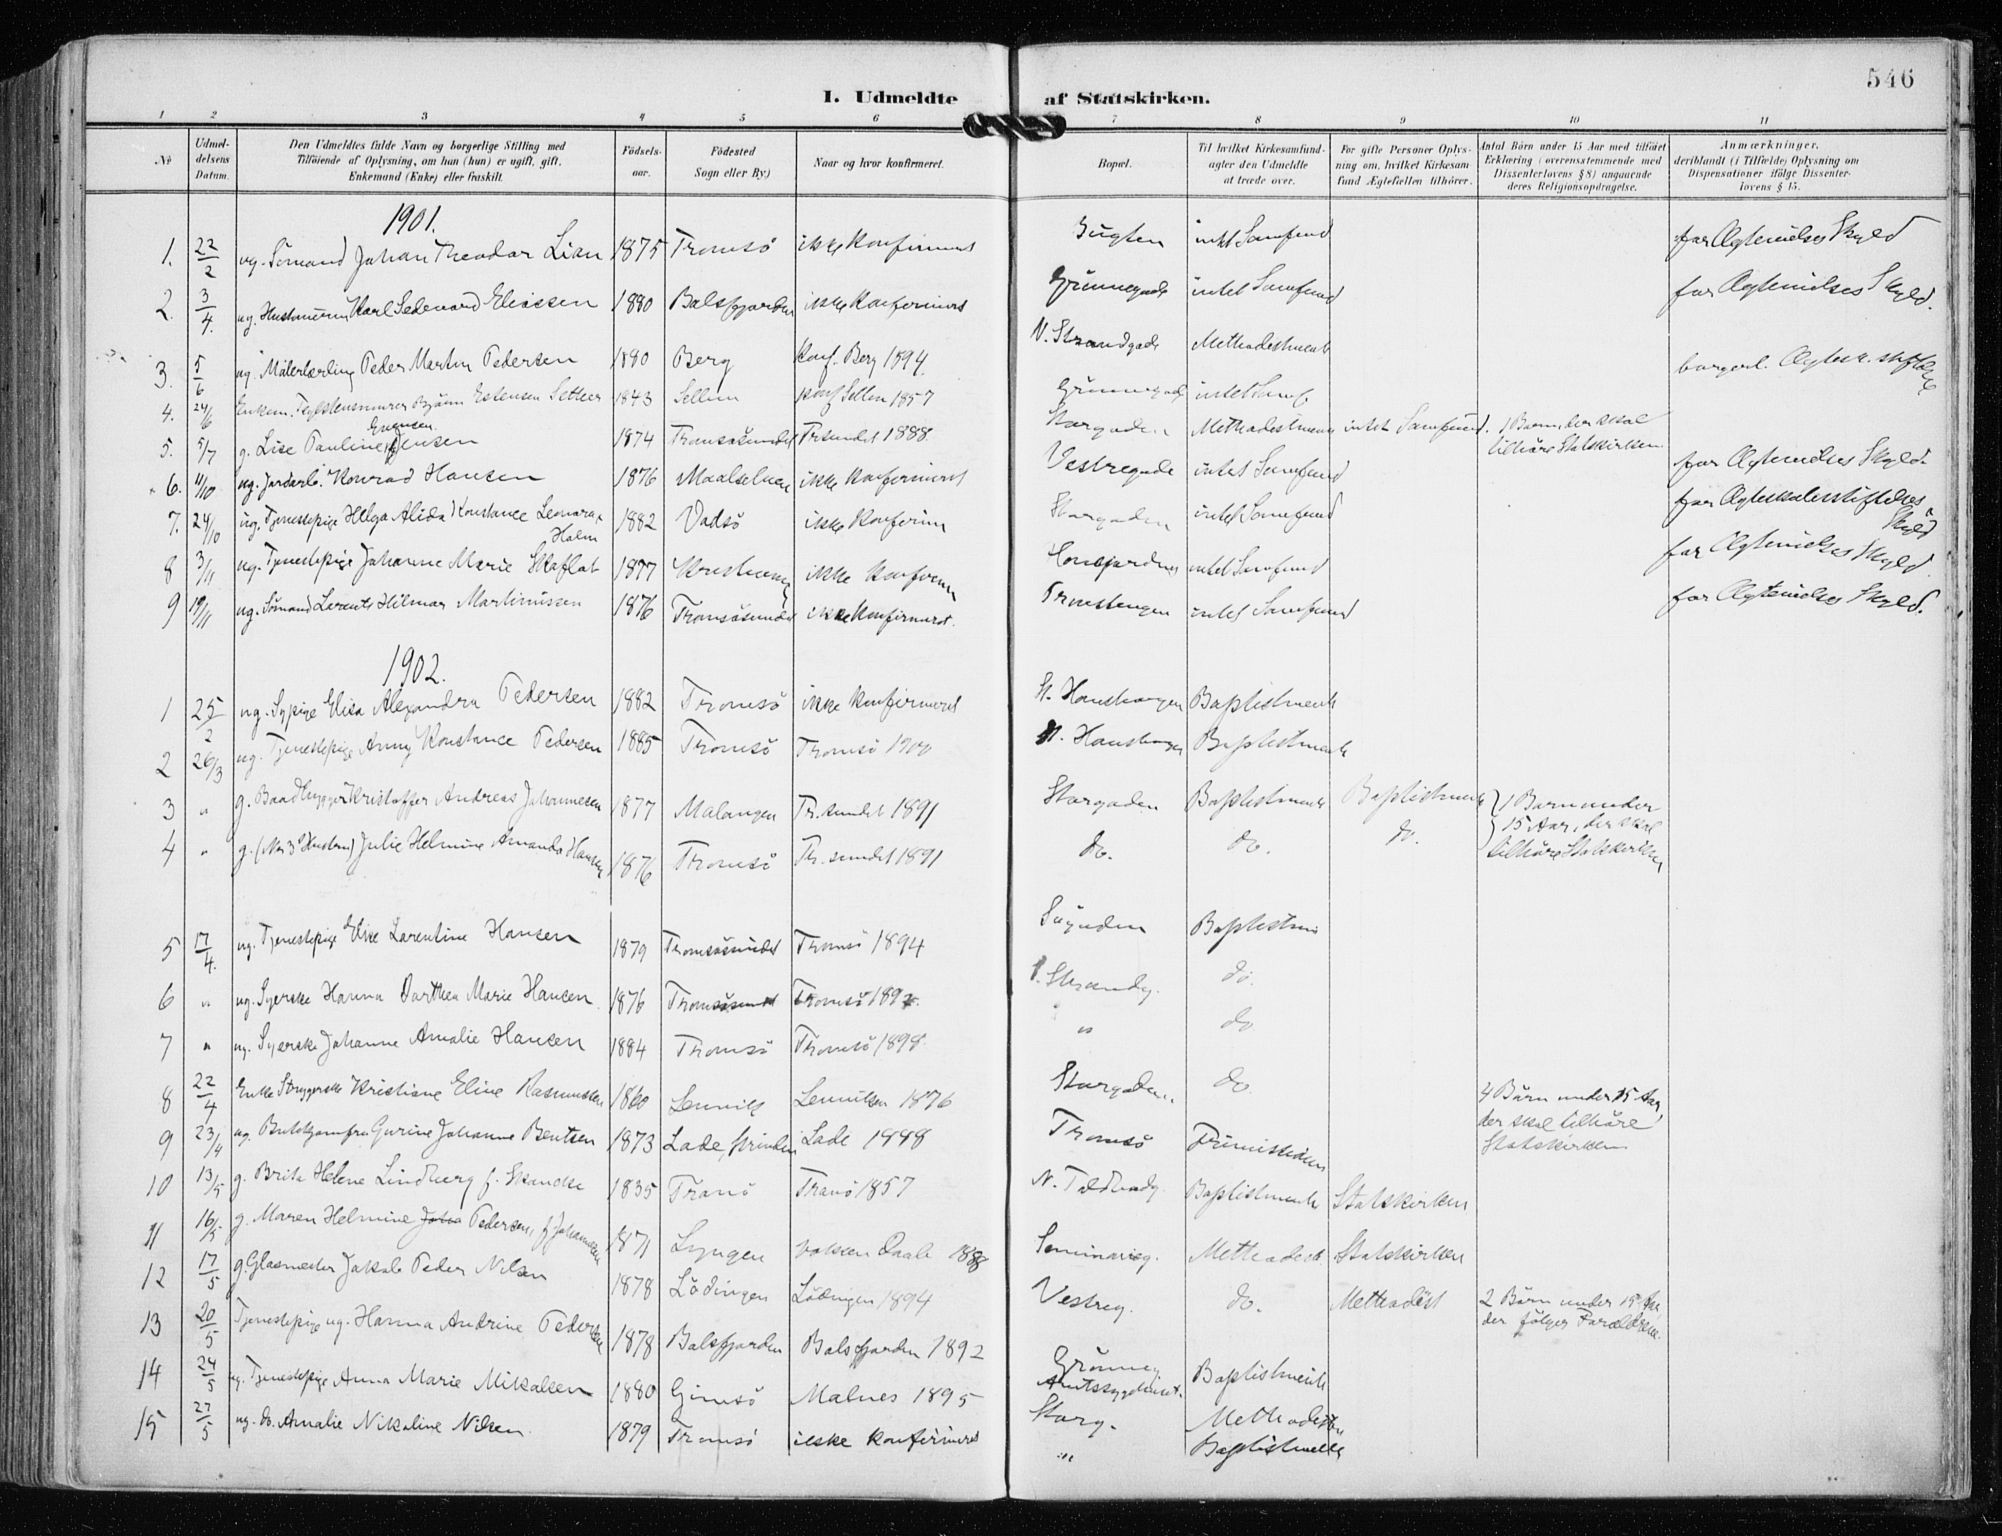 546
I. Udmeldte af Statskirken.
1 2 3 4 5 6 7 8 9 10 11
No
Udmeldelsens Datum.
Den Udmeldtes fulde Navn og borgerlige Stilling med Tilføiende af Oplysning, om han (hun) er ugift, gift, Enkemand (Enke) eller fraskilt.
Fødselsaar.
Fødested Sogn eller By)
Naar og hvor konfirmeret.
Bopæl.
Til hvilket Kirkesamfund agter den Udmeldte at træde over.
For gifte Personer Oplysning om, hvilket Kirkesamfund Ægtefællen tilhører.
Antal Børn under 15 Aar med tilføiet Erklæring (overensstemmende med Dissenterlovens § 8) angaaende deres Religionsopdragelse.
Anmærkninger, deriblandt (i Tilfælde) Oplysning om Dispensationer ifølge Dissenterlovens § 15.
1901.
1. 22/2 ug. Sömand Johan Theodor Lian 1875 Tromsö ikke Konfirmert intet Samfund for Ægtevielses Skyld
2. 3/4 ug. Karl Edevard Eliassen 1880 Balsfjorden ikke Konfirmert Grönnegade intet Samfund for Ægtevielses Skyld.
3. 5/6 ug. Malerlærling Peder Martin Pedersen 1880 Berg Konf. Berg 1894. N. Strandgade Methodistmenh borgerl.
4. 24/6 Enkem. Estensen 1843 Konf 1857 Grönnegade intet Samf
5. 5/7 g. Lise Pauline Jensen Evensen 1874 Tromsösundet Tr.sundet 1888. Storgaden Methodistmen intet Samfund. 1 Barn, der skal tilhöre Statskirken
6. 11/10 ug. Konrad Hansen 1876 Maalselven ikke Konfirmert Vestregade intet Samfund for Ægtevielses Skyld.
7. 24/10 ug. Tjenestepige Helga Alida Konstance Leonora Holm 1882 Vadsö ikke Konfirm Storgaden intet Samfund for Ægteskabsstiftelses Skyld
8 3/11 ug. Tjenestepige Johanne Marie Skaflot 1877 ikke Konfirm intet Samfund for Ægtevielses Skyld
9 19/11 ug. Sömand Lorents Hilmar Martinussen 1876 Tromsösundet ikke Konfirmeret. intet Samfund for Ægtevielses Skyld.
1902.
1 25/2 ug. Sypige Elisa Alexandra Pedersen 1882 Tromsö ikke Konfirmeret St. Hanshaugen Baptistmenh
2 26/3 ug. Tjenestepige Anny Konstance Pedersen 1885 Tromsö Tromsö 1900 St. Hanshaugen Baptistmenh
3 " g. Baadbygger Kristoffer Andreas Johannesen 1877 Malangen Tr.sundet 1891 Storgaden Baptistmenh Baptistmenh 1 Barn under 15 Aar, der skal tilhöre Statskirken
4 " g. (No 3s Hustru) Julie Helmine Amanda Hansen 1876 Tromsö Tr.sundet 1891 do. do. do.
5 17/4. ug. Tjenestepige Elise Larentine Hansen 1879 Tromsösundet Tromsö 1894 Baptistmen
6 " ug. Syerske Hanna Dorthea Marie Hansen 1876 Tromsösundet Tromsö Strandg. do.
7 " ug. Syerske Johanne Amalie Hansen 1884 Tromsö Tromsö 1898. " do
8 22/4 Enke Strygerske Kristiane Eline Rasmussen 1860 Lenvik Lenvik 1876 Storgaden do. 4 Börn under 15 Aar, der skal tilhöre Statskirken
9 23/4 ug. Butikjomfru Gurine Johanne Bentsen 1873 Lade, Strinden Lade 1888 Tromsö
10 13/5 g. Brita Helene Lindberg f. Skancke 1835 Tranö Tranö 1857 Baptistmenh Statskirken
11 16/5 g. Maren Helmine Joha Pedersen, f. Johannesen 1871 Lyngen 1888 Seminarieg. Methodist Statskirken
12 17/5 g. Glasmester Jakob Peder Nilsen 1878 Lödingen Lödingen 1894 Vestreg. do. Methodist 2 Börn under 15 Aar, der fölger Forældrene.
13 20/5 Tjenestepige ug. Hanna Andrine Pedersen 1878 Balsfjorden Balsfjorden 1892 Grönneg Amtssygehuset. Baptistmenh
14 24/5 ug. Tjenestepige Anna Marie Mikalsen 1880 Gimsö Malnes 1895 Storg. Methodist
15 27/5 ug. do. Amalie Nikoline Nilsen. 1879 Tromsö ikke Konfirmeret " Baptistmenh